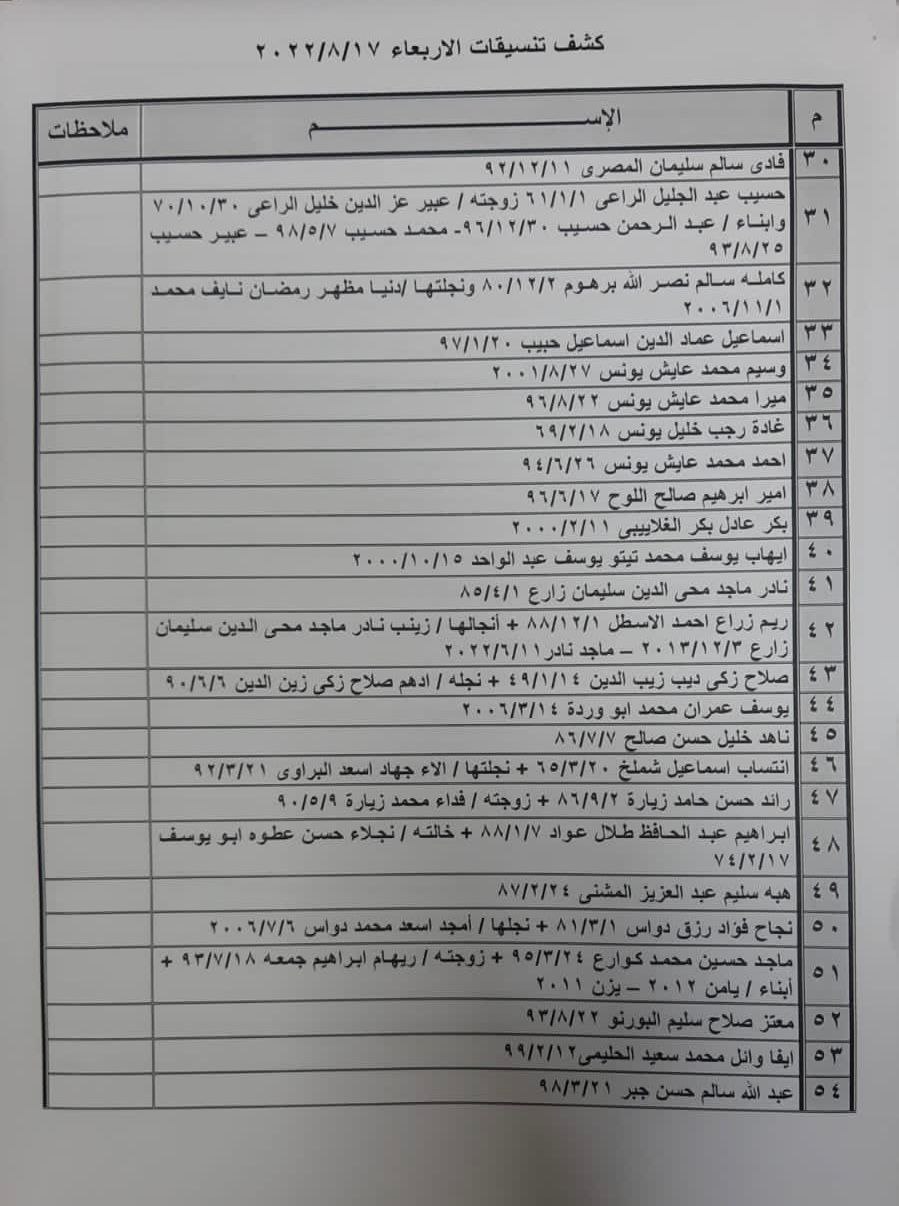 كشف تنسيقات الاربعاء ٢٠٢٢/٨/١٧
م الإســـــــم ملاحظات
٣٠ فادى سالم سليمان المصرى ٩٢/١٢/١١
٣١ حسيب عبد الجليل الراعى ٦١/١/١ زوجته / عبير عز الدين خليل الراعى ٧٠/١٠/٣٠
وابناء / عبد الرحمن حسيب ٩٦/١٢/٣٠- محمد حسيب ٩٨/٥/٧ – عبير حسيب
٩٣/٨/٢٥
٣٢ كامله سالم نصر الله برهوم ٨٠/١٢/٢ ونجلتها /دنيا مظهر رمضان نايف محمد
٢٠٠٦/١١/١
٣٣ اسماعيل عماد الدين اسماعيل حبيب ٩٧/١/٢٠
٣٤ وسيم محمد عايش يونس ٢٠٠١/٨/٢٧
٣٥ ميرا محمد عايش يونس ٩٦/٨/٢٢
٣٦ غادة رجب خليل يونس ٦٩/٢/١٨
٣٧ احمد محمد عايش يونس ٩٤/٦/٢٦
٣٨ امير ابرهيم صالح اللوح ٩٦/٦/١٧
٣٩ بكر عادل بكر الغلاييبى ٢٠٠٠/٢/١١
٤٠ ايهاب يوسف محمد تيتو يوسف عبد الواحد ٢٠٠٠/١٠/١٥
٤١ نادر ماجد محى الدين سليمان زارع ٨٥/٤/١
٤٢ ريم زراع احمد الاسطل ٨٨/١٢/١ + أنجالها / زينب نادر ماجد محى الدين سليمان
زارع ٢٠١٣/١٢/٣ – ماجد نادر٢٠٢٢/٦/١١
٤٣ صلاح زكى ديب زيب الدين ٤٩/١/١٤ + نجله / ادهم صلاح زكى زين الدين ٩٠/٦/٦
٤٤ يوسف عمران محمد ابو وردة ٢٠٠٦/٣/١٤
٤٥ ناهد خليل حسن صالح ٨٦/٧/٧
٤٦ انتساب اسماعيل شملخ ٦٥/٣/٢٠ + نجلتها / الاء جهاد اسعد البراوى ٩٢/٣/٢١
٤٧ رائد حسن حامد زيارة ٨٦/٩/٢ + زوجته / فداء محمد زيارة ٩٠/٥/٩
٤٨ ابراهيم عبد الحافظ طلال عواد ٨٨/١/٧ + خالته / نجلاء حسن عطوه ابو يوسف
٧٤/٢/١٧
٤٩ هبه سليم عبد العزيز المشنى ٨٧/٢/٢٤
٥٠ نجاح فؤاد رزق دواس ٨١/٣/١ + نجلها / أمجد اسعد محمد دواس ٢٠٠٦/٧/٦
٥١ ماجد حسين محمد كوارع ٩٥/٣/٢٤ + زوجته / ريهام ابراهيم جمعه ٩٣/٧/١٨ +
أبناء / يامن ٢٠١٢ – يزن ٢٠١١
٥٢ معتز صلاح سليم البورنو ٩٣/٨/٢٢
٥٣ ايفا وائل محمد سعيد الحليمى٩٩/٢/١٢
٥٤ عبد الله سالم حسن جبر ٩٨/٣/٢١